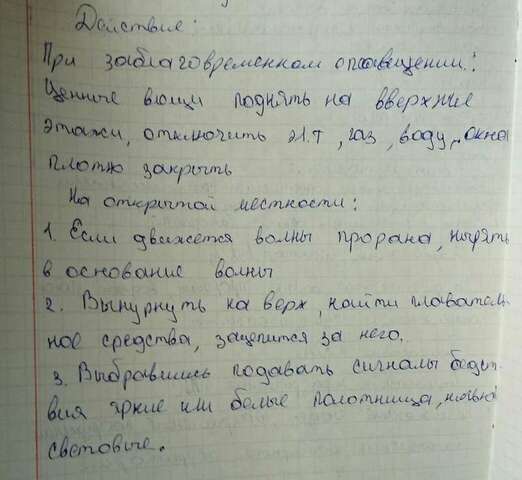 Действие:
При заблаговременном оповещении:
Ценные вющи поднять на вверхние
этажи, отключить эл.т, газ, воду, окна
плотно закрыть
На открытой местности:
1. Если движется волны прорана, нырять
в основание волны
2. Вынурнуть на верх, найти плаватель-
ное средства, зацепится за него.
3. Выбравшись подавать сигналы бедст-
вия яркие или белые полотнища, ночью
световые.